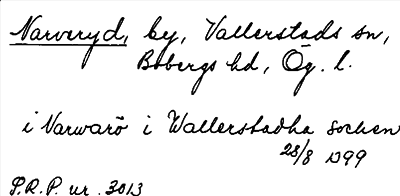 Narveryd, by, Vallerstads sn,
Bobergs hd, Ög. l.
i Narwarö i Wallerstadha sochen
28/8 1399
S.R.P. nr. 3013